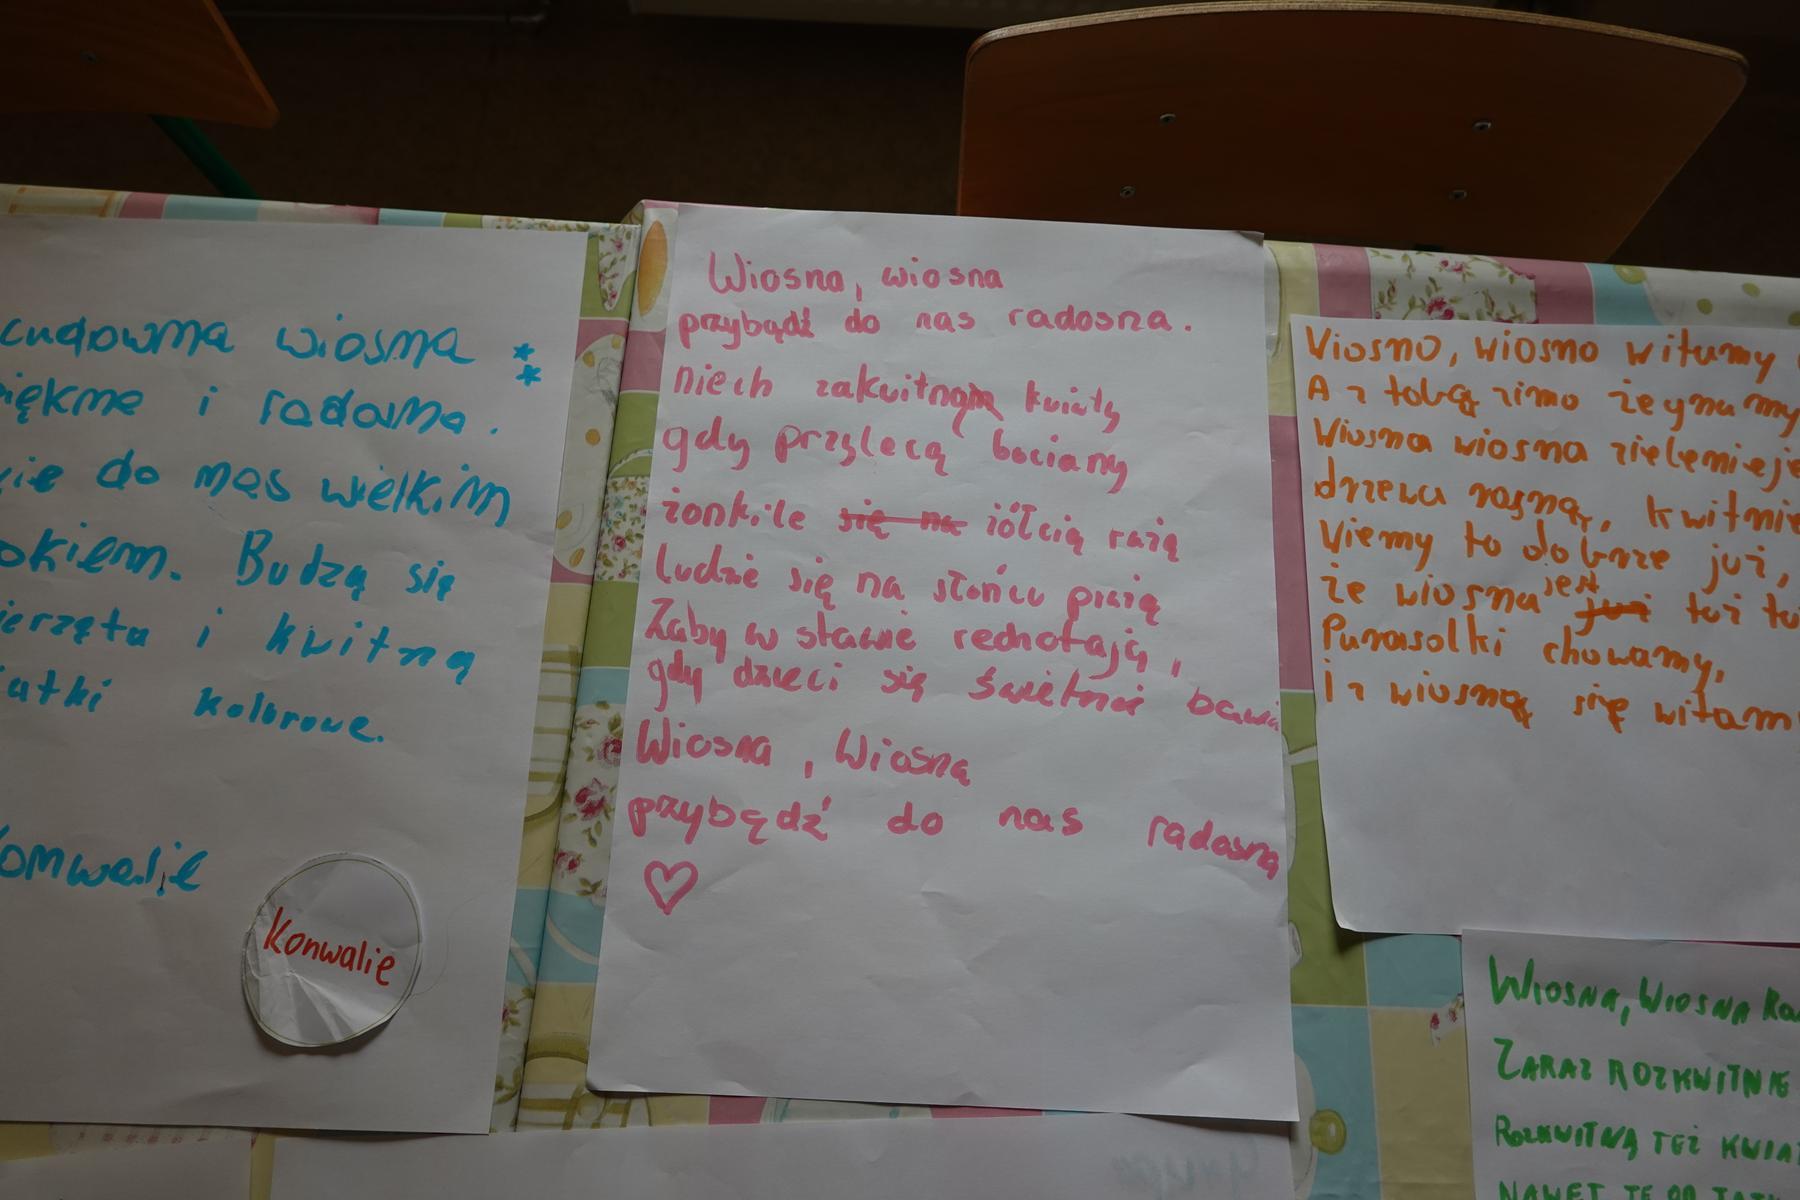 cudowna wiosna
piękne i radosna.
do nas wielkim
okiem. Budzą się
i kwitną
kolorowe.
Konwalie
Konwalie
Wiosna, wiosna
przybądź do nas radosna.
niech zakwitną kwiaty
gdy przylecą bociany
żonkile się na żółcią rażą
ludzie się na słońcu prażą
Żaby w stawie rechotają,
gdy dzieci się świetnie bawią
Wiosna, Wiosną
przybądź do nas radosną
Wiosno, wiosno witamy
A z tobą zimo żegnamy
Wiosna wiosna zielenieje
drzewa rosną, kwitnie
Wiemy to dobrze już,
że wiosna jest już tuż
Parasolki chowamy,
I z wiosną się witam
WIOSNA, WIOSNA
ZARAZ ROZKWITNIE
ROZKWITNĄ TEŻ KWIAT
NAWET TE OD